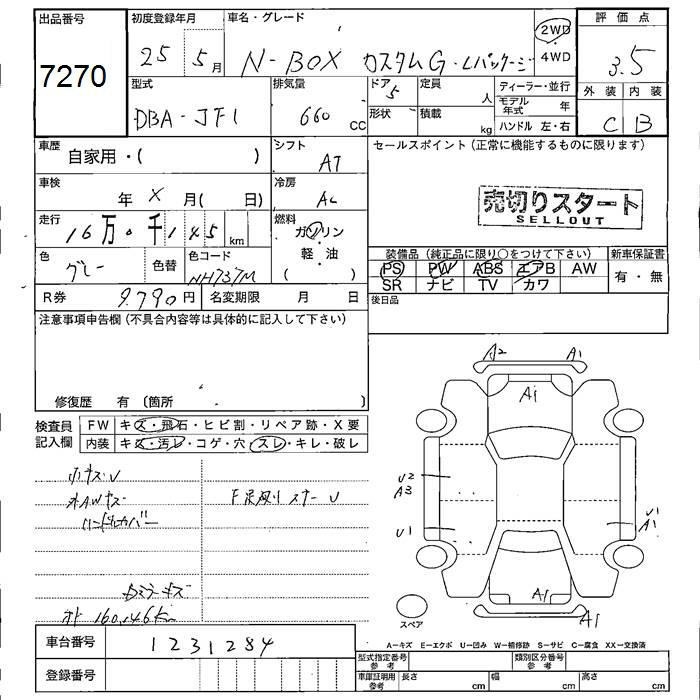 出品番号
7270
初度登録年月
25 5月
車名・グレード
N-BOX カスタムG・Lパッケージ
2WD
・
4WD
評価点
3.5
外装 内装
C B
型式
DBA-JF1
排気量
660 cc
ドア 5
形状
定員 人
積載 kg
ディーラー・並行
モデル年式 年
ハンドル 左・右
車歴
自家用・( )
シフト
AT
セールスポイント(正常に機能するものに限ります)
車検
年 X 月( 日)
冷房
AC
売切りスタート
SELLOUT
走行
16万0千145 km
燃料
ガソリン
軽・油
( )
色
グレー
色替
色コード
NH737M
装備品(純正品に限り○をつけて下さい)
新車保証書
PS PW ABS エアB AW
SR ナビ TV カワ
有・無
R券 9,790円
名変期限 月 日
後日品
注意事項申告欄(不具合内容等は具体的に記入して下さい)
修復歴 有 (箇所
検査員
記入欄
FW キズ・飛石・ヒビ割・リペア跡・X要
内装 キズ・汚レ・コゲ・穴・スレ・キレ・破レ
A2 A1
A1
U2
A3
U1
U1
A1
A1
A1
スペア
ハンドルカバー
オド 160,146km
車台番号 1231284
登録番号
A―キズ E―エクボ U―凹み W―補修跡 S―サビ C―腐食 XX―交換済
型式指定番号
参考
類別区分番号
参考
車庫証明用
参考
長さ cm
幅 cm
高さ cm